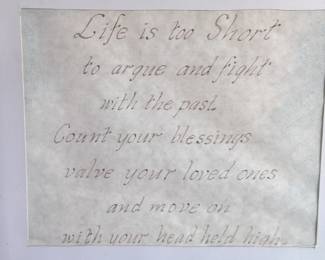 Life is too Short
to argue and fight
with the past.
Count your blessings
valve your loved ones
and move on
with your head held high.